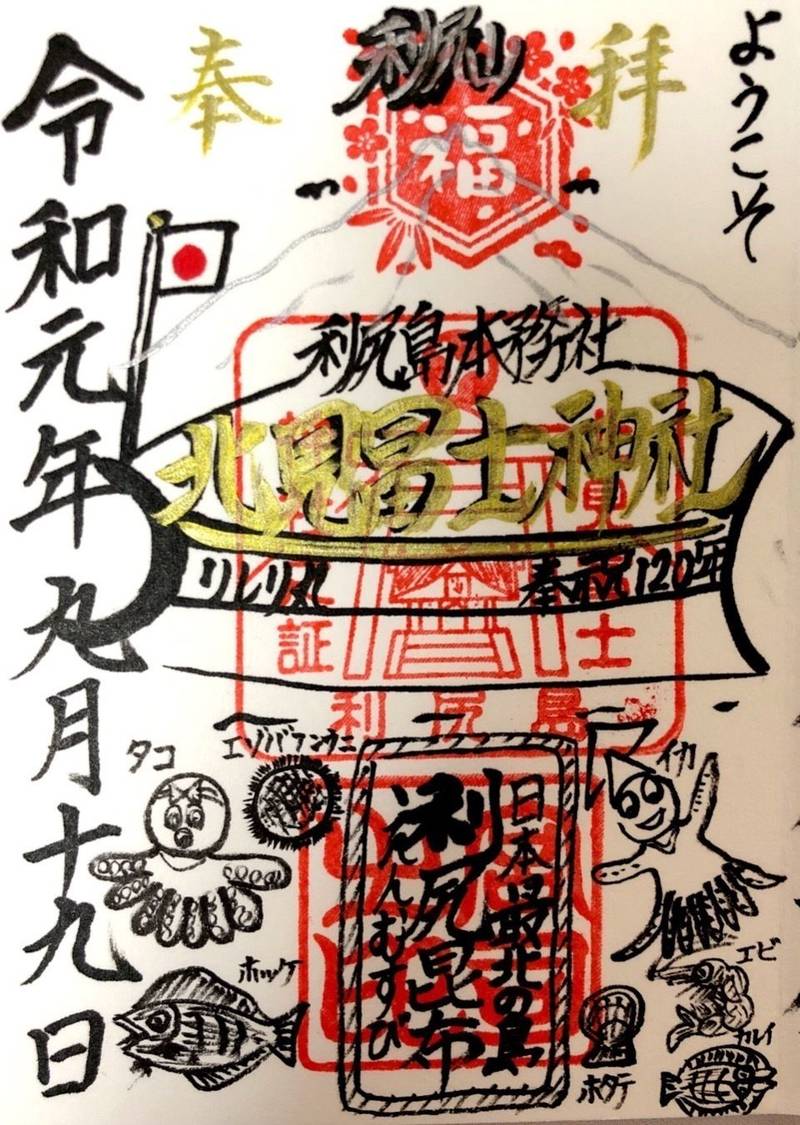 ようこそ
奉
拝
利尻山
福
利尻島本務社
北見冨士神社
リシリ丸
奉祝120年
利尻島
タコ
エゾバフンウニ
イカ
日本最北の島
利尻昆布
えんむすび
ホッケ
エビ
ホタテ
カレイ
令和元年九月十九日